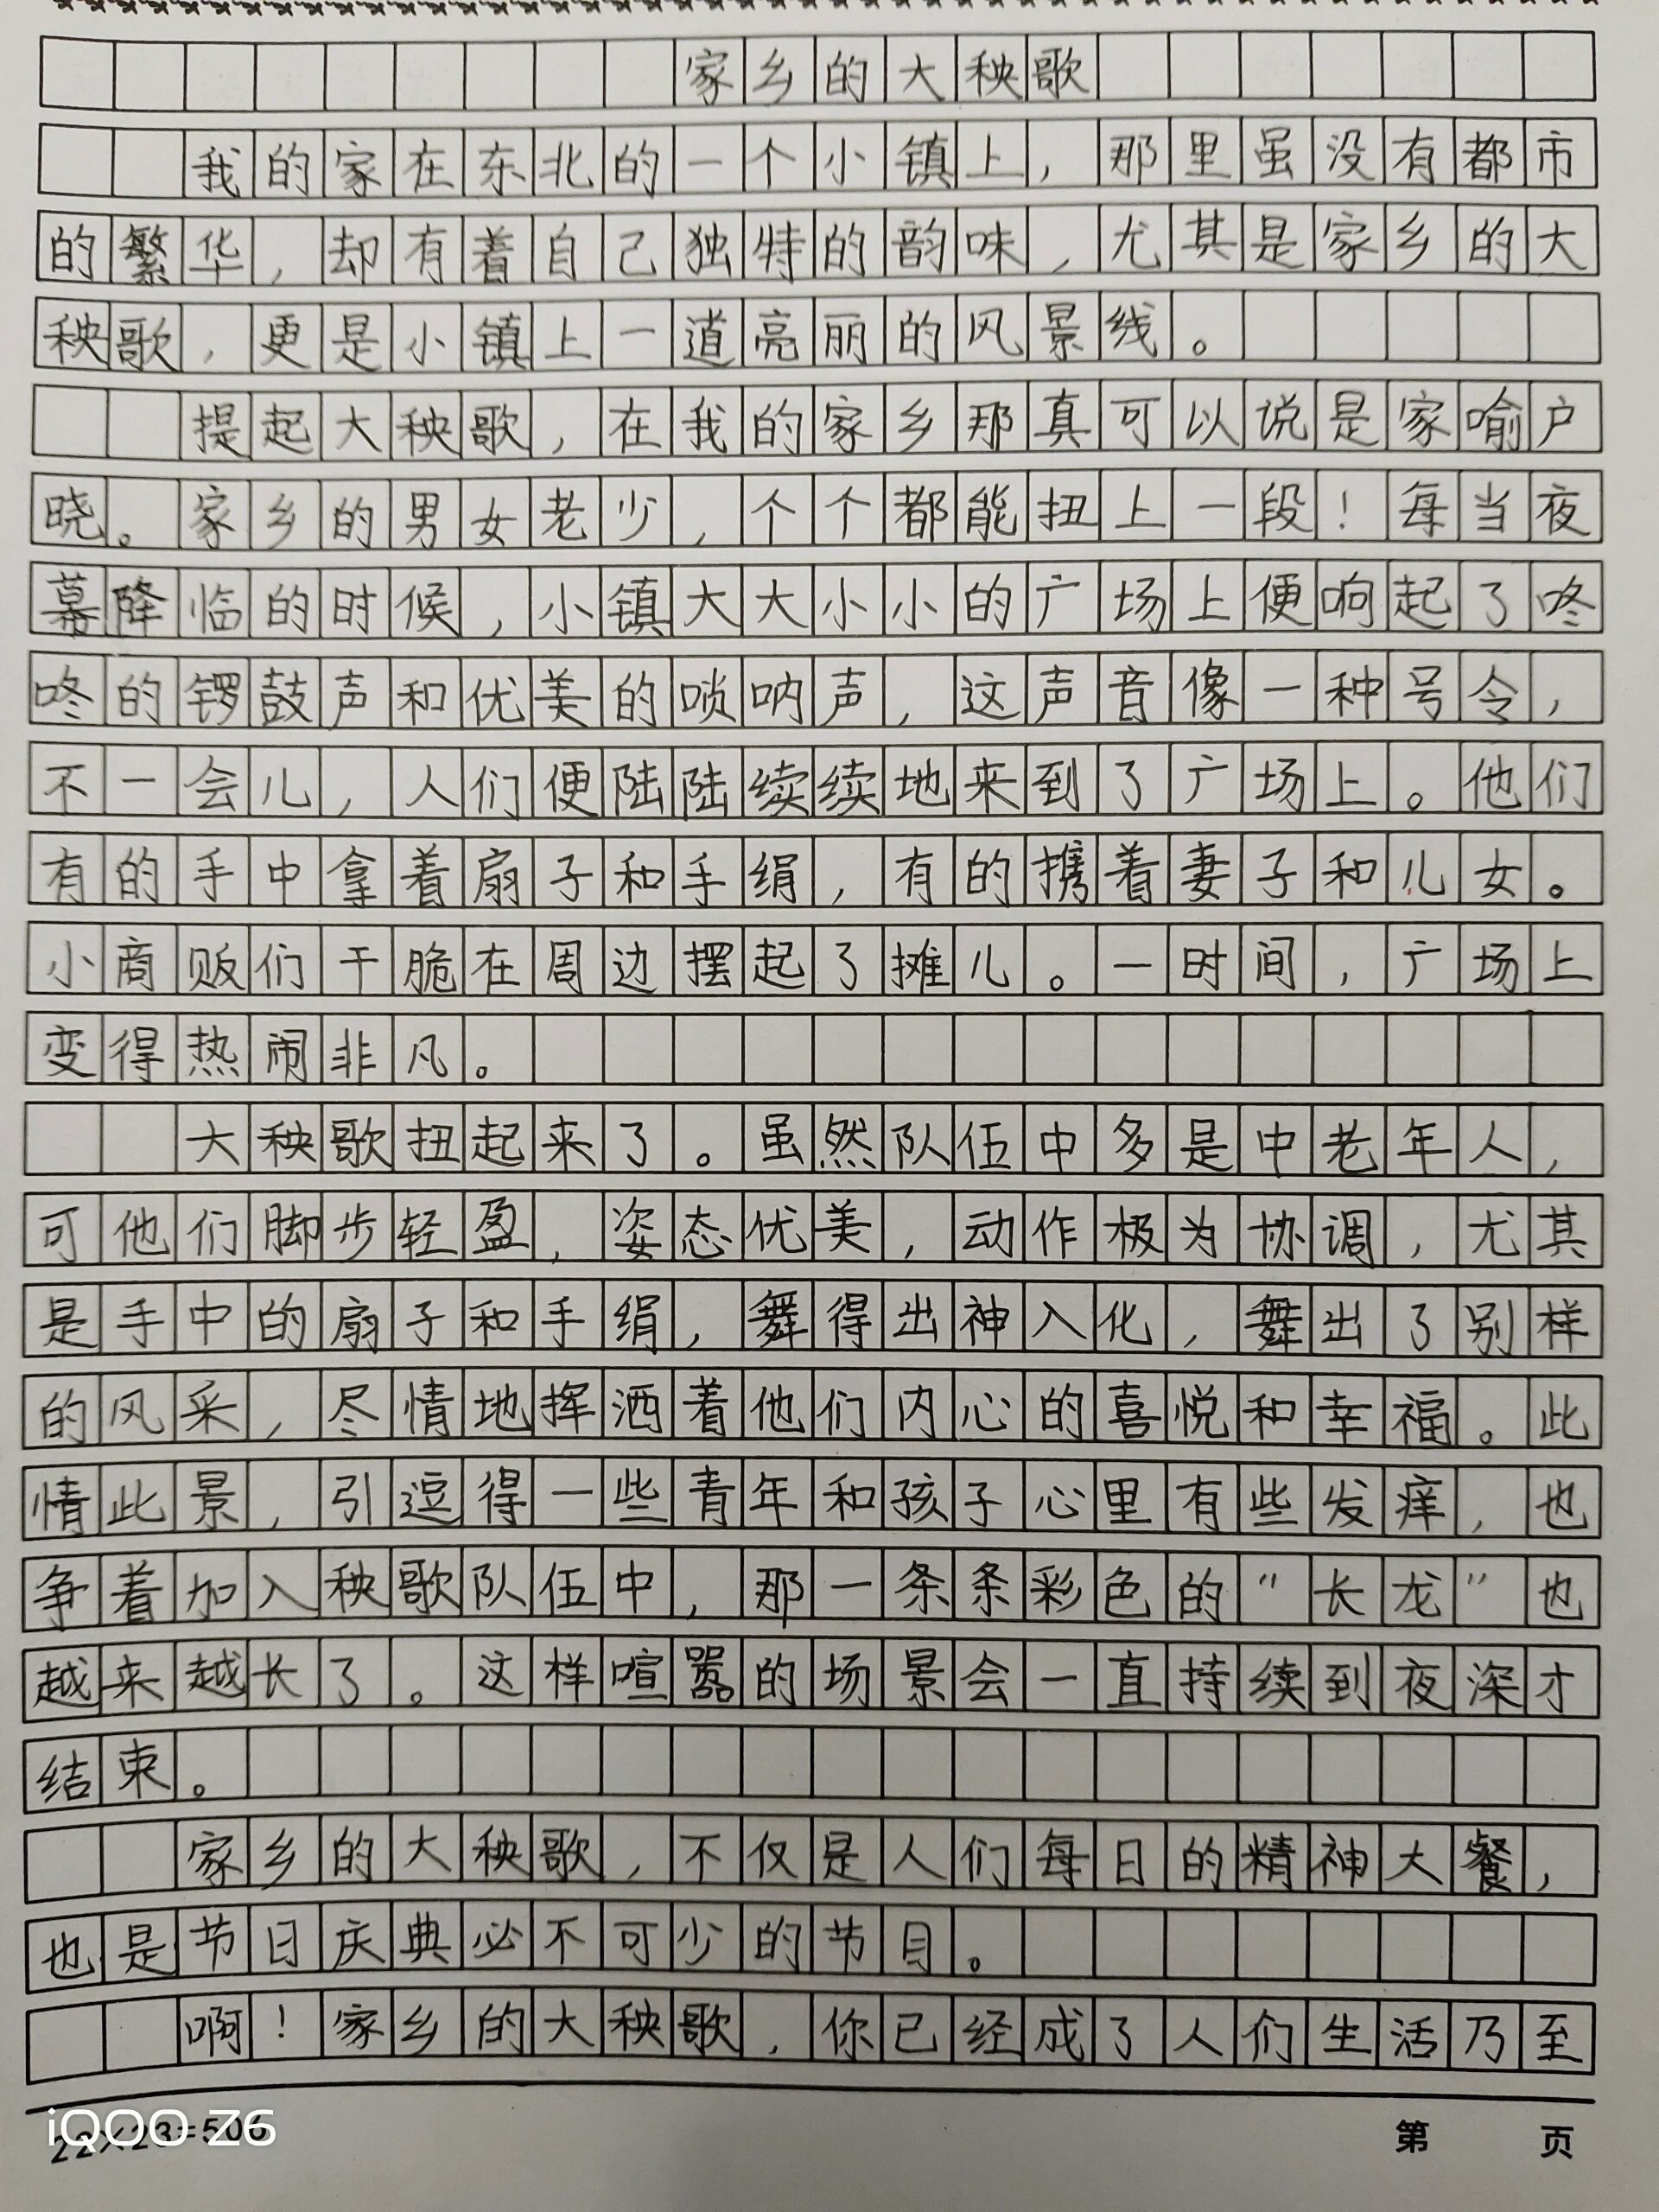 家乡的大秧歌
我的家在东北的一个小镇上，那里虽没有都市
的繁华，却有着自己独特的韵味，尤其是家乡的大
秧歌，更是小镇上一道亮丽的风景线。
提起大秧歌，在我的家乡那真可以说是家喻户
晓。家乡的男女老少，个个都能扭上一段！每当夜
幕降临的时候，小镇大大小小的广场上便响起了咚
咚的锣鼓声和优美的唢呐声，这声音像一种号令，
不一会儿，人们便陆陆续续地来到了广场上。他们
有的手中拿着扇子和手绢，有的携着妻子和儿女。
小商贩们干脆在周边摆起了摊儿。一时间，广场上
变得热闹非凡。
大秧歌扭起来了。虽然队伍中多是中老年人，
可他们脚步轻盈，姿态优美，动作极为协调，尤其
是手中的扇子和手绢，舞得出神入化，舞出了别样
的风采，尽情地挥洒着他们内心的喜悦和幸福。此
情此景，引逗得一些青年和孩子心里有些发痒，也
争着加入秧歌队伍中，那一条条彩色的“长龙”也
越来越长了。这样喧嚣的场景会一直持续到夜深才
结束。
家乡的大秧歌，不仅是人们每日的精神大餐，
也是节日庆典必不可少的节目。
啊！家乡的大秧歌，你已经成了人们生活乃至
22×23=506
iQOO Z6
第 页